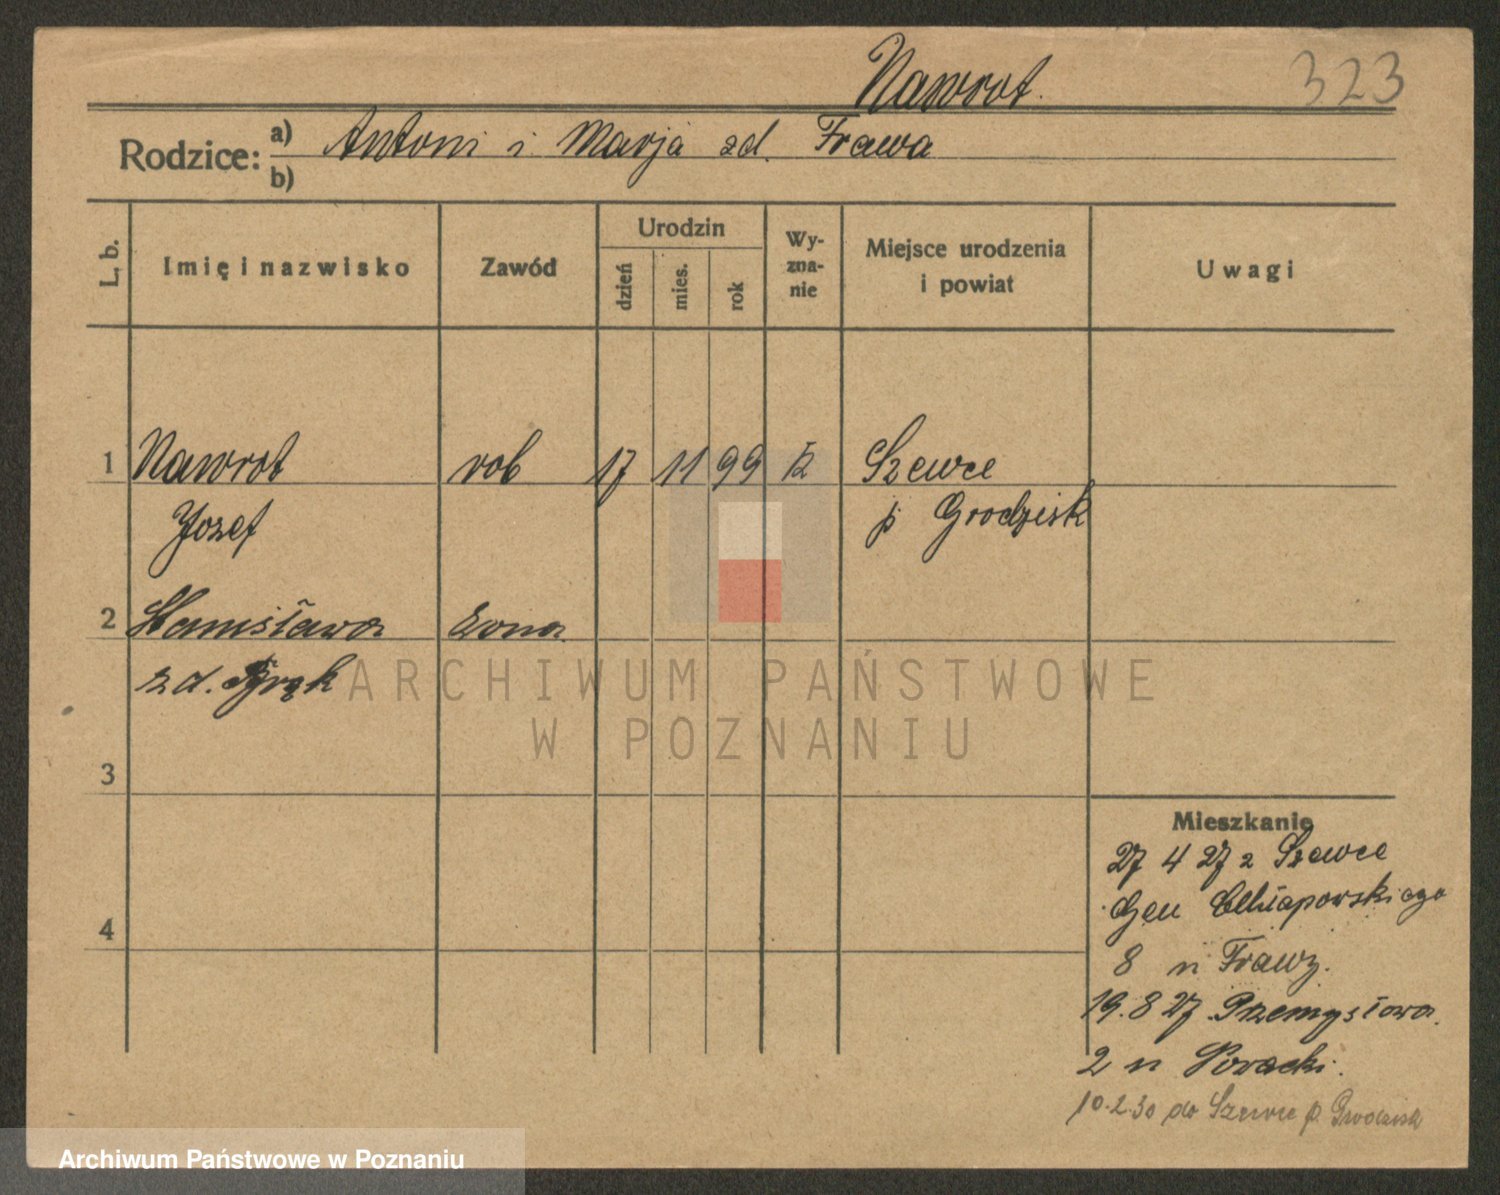 Nawrot. 323
Rodzice: a) Antoni i Marja zd. Frawa
b)
L. b. Imię i nazwisko Zawód Urodzin dzień mies. rok Wy-zna-nie Miejsce urodzenia i powiat Uwagi
1 Nawrot rob 17 11 99 rz Szewce
Jozef p Grodzisk
2 Stanisława żona
z d. Bąk
3
Mieszkanie
27 4 27 z Szewce
Gen Chłapowskiego
4
8 u Frawy.
19.8 27 Przemysłowa.
2 u Poracki.
10.2.30 do Szewce p. Grodzisk
ARCHIWUM PAŃSTWOWE
W POZNANIU
Archiwum Państwowe w Poznaniu